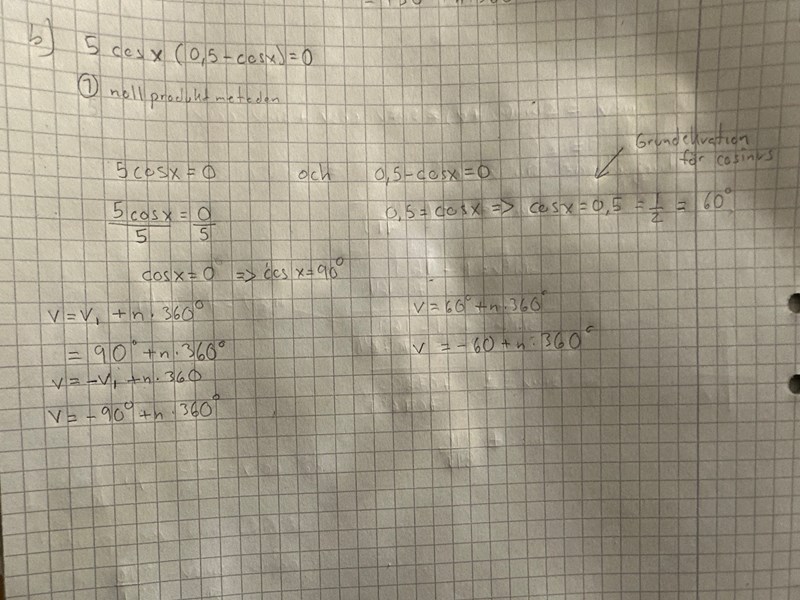 b) 5 cosx (0,5-cosx)=0
① nollproduktmetoden
Grundekvation
för cosinus
5cosx=0 och 0,5-cosx=0
5cosx/5 = 0/5 0,5=cosx => cosx=0,5 = 1/2 = 60°
cosx=0 => cosx=90°
v=v₁+n·360° v=60°+n·360°
=90°+n·360° v=-60+n·360°
v=-v₁+n·360
v=-90°+n·360°